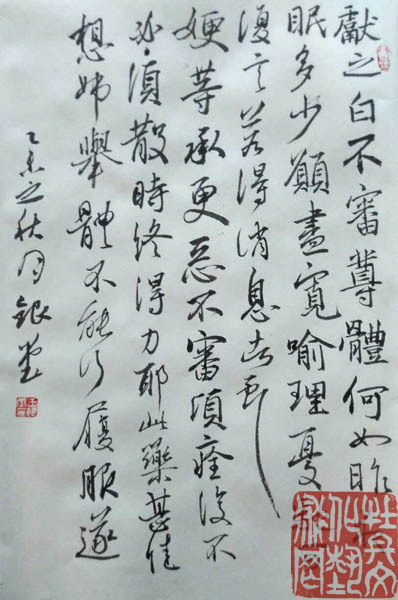 獻之白不審尊體何如昨
眠多少願盡寬喻理憂
復言若得消息
等承更惡不審須痊復不
須散時終得力耶此藥甚佳
想姊舉體不能行履服遂
乙未之秋月銀堂